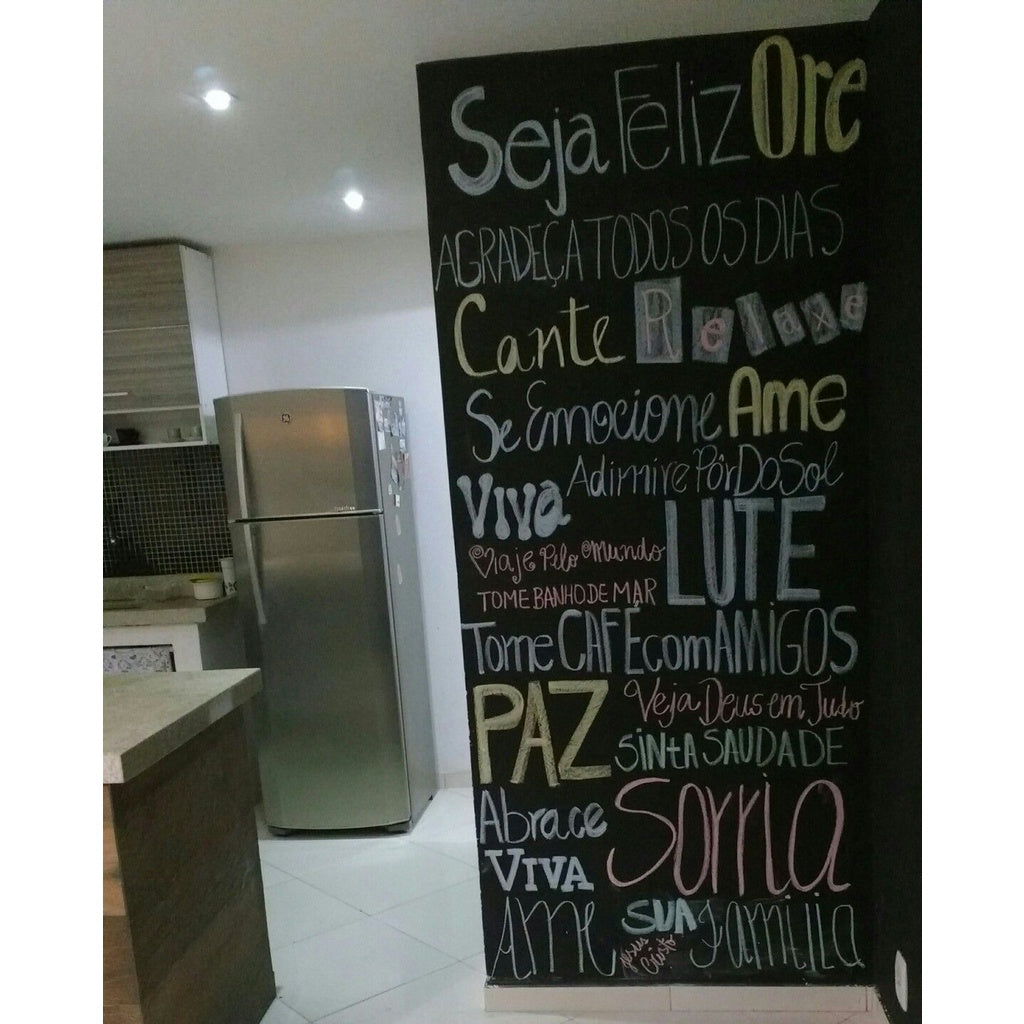 Seja Feliz Ore
AGRADEÇA TODOS OS DIAS
Cante Relaxe
Se Emocione Ame
Adimire Pôr Do Sol
Viva LUTE
Viaje Pelo Mundo
TOME BANHO DE MAR
Tome CAFÉ com AMIGOS
PAZ Veja Deus em Tudo
SINTA SAUDADE
Abrace Sorria
VIVA
Ame SUA Família
Jesus Cristo